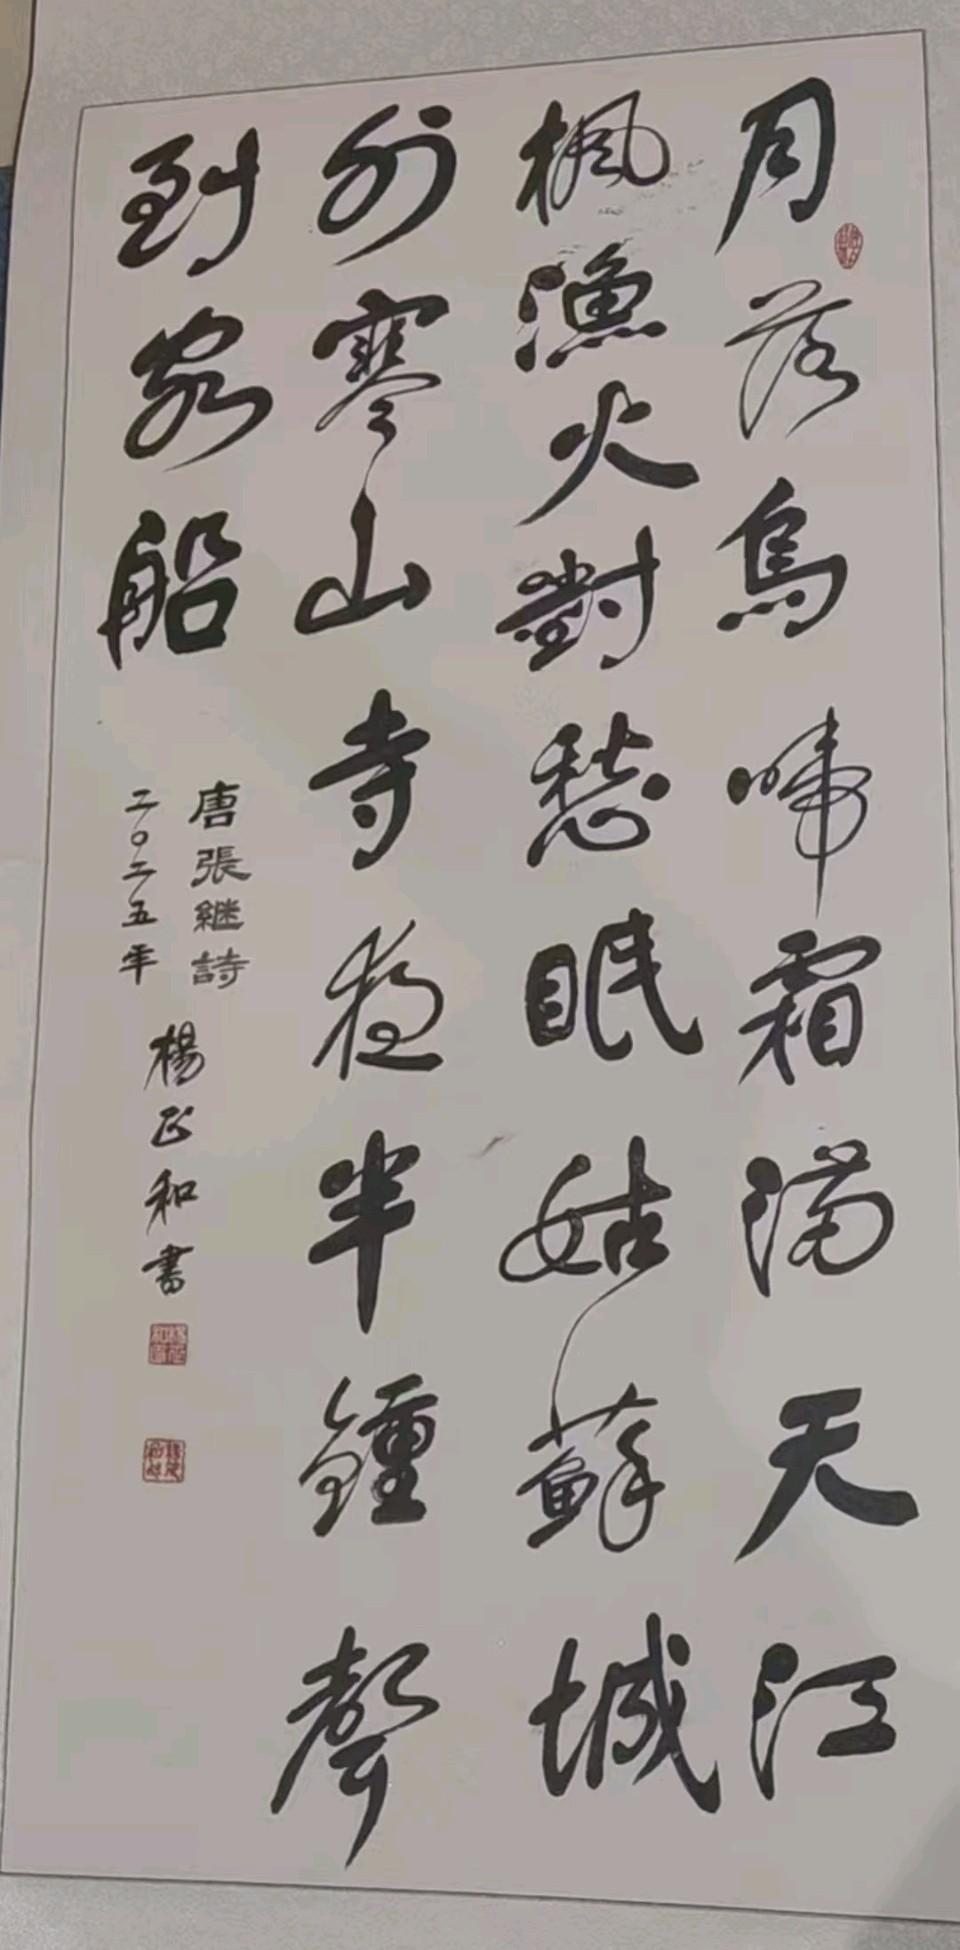 月落烏啼霜滿天江
楓漁火對愁眠姑蘇城
外寒山寺夜半鍾聲
到客船
唐張継詩
二〇二五年
楊正和書